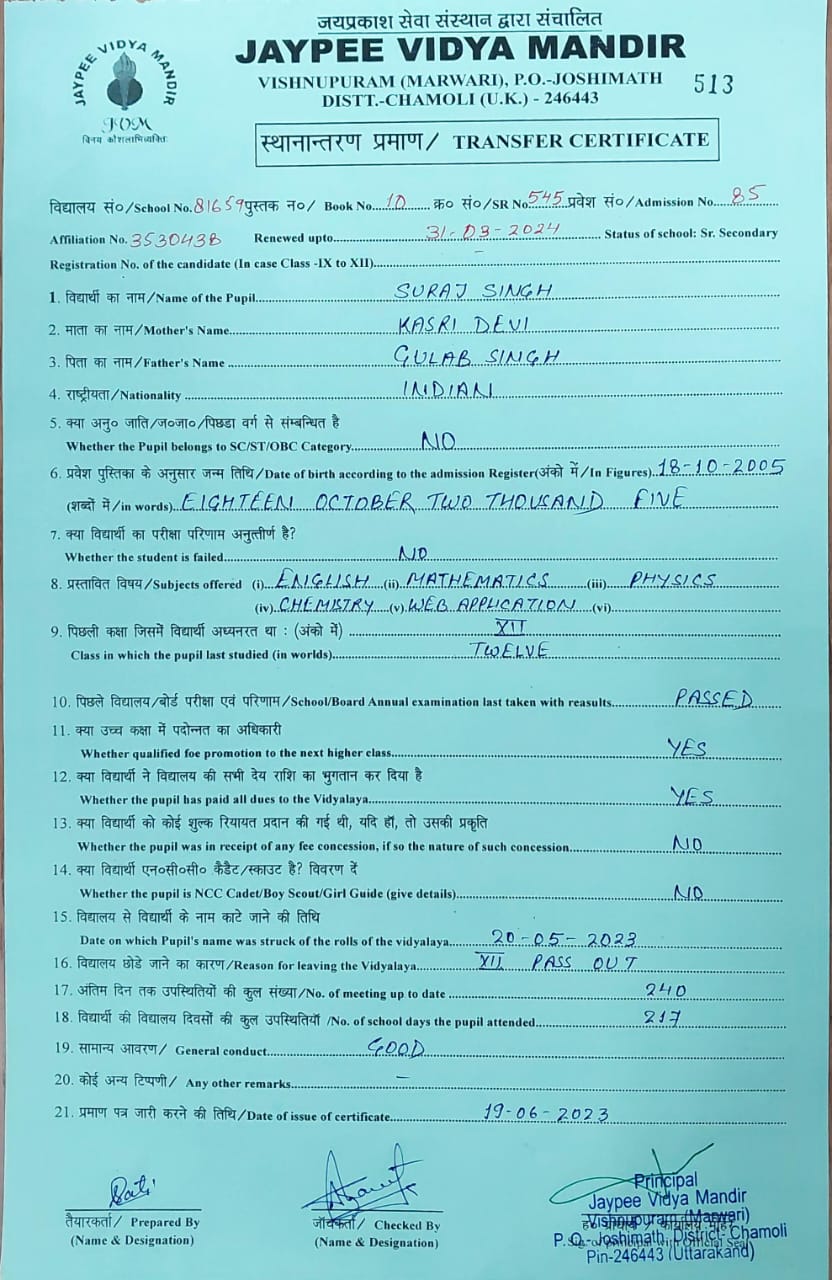 जयप्रकाश सेवा संस्थान द्वारा संचालित
JAYPEE VIDYA MANDIR
JAYPEE VIDYA MANDIR
VISHNUPURAM (MARWARI), P.O.-JOSHIMATH
513
DISTT.-CHAMOLI (U.K.) - 246443
विनय कौशलाभिव्यक्तिः
स्थानान्तरण प्रमाण/ TRANSFER CERTIFICATE
विद्यालय सं०/School No. 81659 पुस्तक न०/ Book No. 10 क्र० सं०/SR No. 545 प्रवेश सं०/Admission No. 85
Affiliation No. 3530438 Renewed upto 31-03-2024 Status of school: Sr. Secondary
Registration No. of the candidate (In case Class -IX to XII) –
1. विद्यार्थी का नाम/Name of the Pupil SURAJ SINGH
2. माता का नाम/Mother's Name KASRI DEVI
3. पिता का नाम/Father's Name GULAB SINGH
4. राष्ट्रीयता/Nationality INDIAN
5. क्या अनु० जाति/ज०जा०/पिछडा वर्ग से सम्बन्धित है
Whether the Pupil belongs to SC/ST/OBC Category NO
6. प्रवेश पुस्तिका के अनुसार जन्म तिथि/Date of birth according to the admission Register(अंको में/In Figures) 18-10-2005
(शब्दों में/in words) EIGHTEEN OCTOBER TWO THOUSAND FIVE
7. क्या विद्यार्थी का परीक्षा परिणाम अनुत्तीर्ण है?
Whether the student is failed NO
8. प्रस्तावित विषय/Subjects offered (i) ENGLISH (ii) MATHEMATICS (iii) PHYSICS
(iv) CHEMISTRY (v) WEB APPLICATION (vi)
9. पिछली कक्षा जिसमें विद्यार्थी अध्यनरत था : (अंको में) XII
Class in which the pupil last studied (in worlds) TWELVE
10. पिछले विद्यालय/बोर्ड परीक्षा एवं परिणाम/School/Board Annual examination last taken with reasults PASSED
11. क्या उच्च कक्षा में पदोन्नत का अधिकारी
Whether qualified foe promotion to the next higher class YES
12. क्या विद्यार्थी ने विद्यालय की सभी देय राशि का भुगतान कर दिया है
Whether the pupil has paid all dues to the Vidyalaya YES
13. क्या विद्यार्थी को कोई शुल्क रियायत प्रदान की गई थी, यदि हाँ, तो उसकी प्रकृति
Whether the pupil was in receipt of any fee concession, if so the nature of such concession NO
14. क्या विद्यार्थी एन०सी०सी० कैडैट/स्काउट है? विवरण दें
Whether the pupil is NCC Cadet/Boy Scout/Girl Guide (give details) NO
15. विद्यालय से विद्यार्थी के नाम काटे जाने की तिथि
Date on which Pupil's name was struck of the rolls of the vidyalaya 20-05-2023
16. विद्यालय छोडे जाने का कारण/Reason for leaving the Vidyalaya XII PASS OUT
17. अंतिम दिन तक उपस्थितियों की कुल संख्या/No. of meeting up to date 240
18. विद्यार्थी की विद्यालय दिवसों की कुल उपस्थितियाँ /No. of school days the pupil attended 217
19. सामान्य आवरण/ General conduct GOOD
20. कोई अन्य टिप्पणी/ Any other remarks –
21. प्रमाण पत्र जारी करने की तिथि/Date of issue of certificate 19-06-2023
तैयारकर्ता/ Prepared By
(Name & Designation)
जाँचकर्ता/ Checked By
(Name & Designation)
Principal
Jaypee Vidya Mandir
Vishnupuram (Marwari)
P.O.-Joshimath, District- Chamoli
Pin-246443 (Uttarakand)